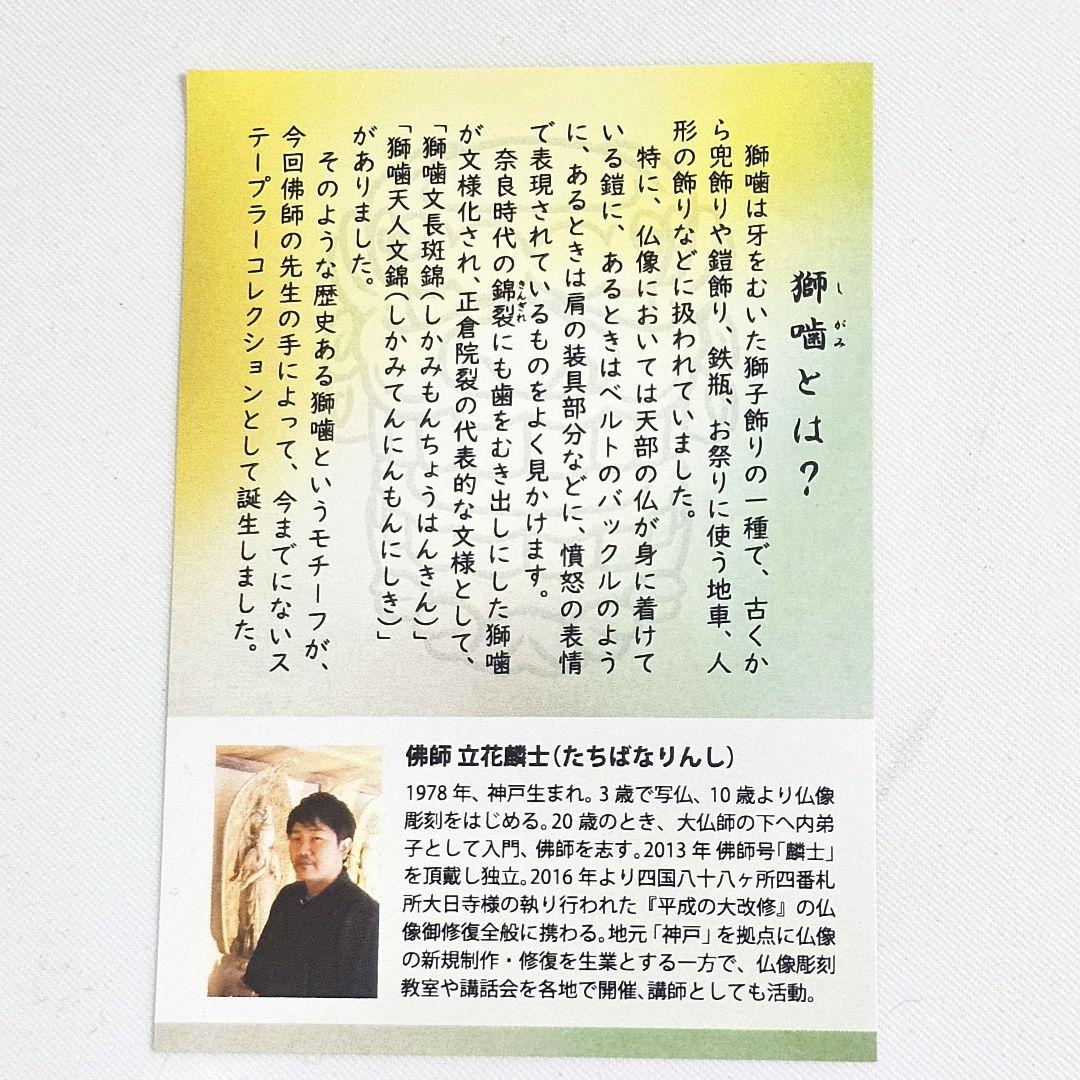 獅噛とは？
しがみ
獅噛は牙をむいた獅子飾りの一種で、古くか
ら兜飾りや鎧飾り、鉄瓶、お祭りに使う地車、人
形の飾りなどに扱われていました。
特に、仏像においては天部の仏が身に着けて
いる鎧に、あるときはベルトのバックルのよう
に、あるときは肩の装具部分などに、憤怒の表情
で表現されているものをよく見かけます。
奈良時代の錦裂にも歯をむき出しにした獅噛
きんぎれ
が文様化され、正倉院裂の代表的な文様として、
「獅噛文長斑錦(しかみもんちょうはんきん)」
「獅噛天人文錦(しかみてんにんもんにしき)」
がありました。
そのような歴史ある獅噛というモチーフが、
今回佛師の先生の手によって、今までにないス
テープラーコレクションとして誕生しました。
佛師 立花麟士(たちばなりんし)
1978 年、神戸生まれ。3 歳で写仏、10 歳より仏像
彫刻をはじめる。20 歳のとき、大仏師の下へ内弟
子として入門、佛師を志す。2013 年 佛師号「麟士」
を頂戴し独立。2016 年より四国八十八ヶ所四番札
所大日寺様の執り行われた『平成の大改修』の仏
像御修復全般に携わる。地元「神戸」を拠点に仏像
の新規制作・修復を生業とする一方で、仏像彫刻
教室や講話会を各地で開催、講師としても活動。